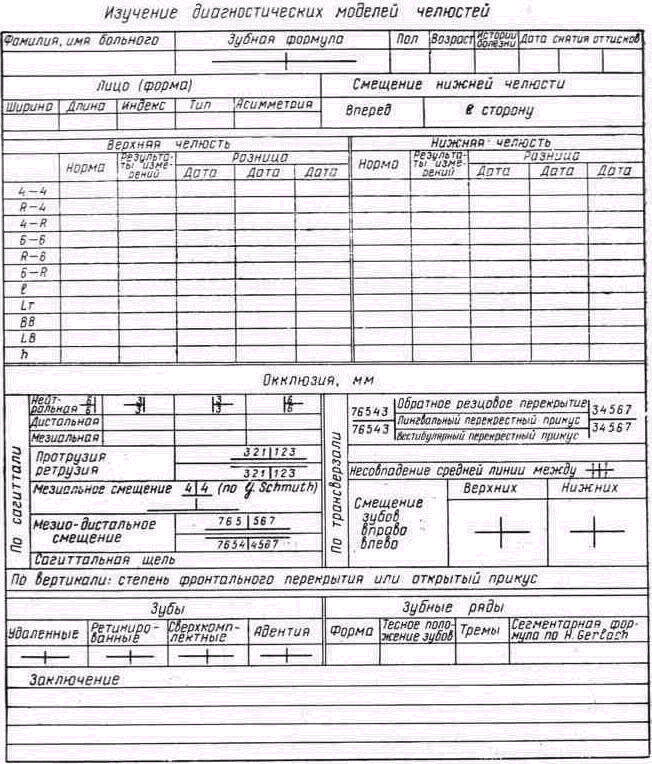 Изучение диагностических моделей челюстей
Фамилия, имя больного Зубная формула Пол Возраст Истории болезни Дата снятия оттисков
Лицо (форма) Смещение нижней челюсти
Ширина Длина Индекс Тип Асимметрия Вперед в сторону
Верхняя челюсть Нижняя челюсть
Норма Результаты измерений Разница Норма Результаты измерений Разница
Дата Дата Дата Дата Дата Дата
4-4
R-4
4-R
6-6
R-6
6-R
ℓ
LT
BB
LB
h
Окклюзия, мм
По сагиттали
Нейтральная 6 6 3 3 3 3 6 6
Дистальная
Мезиальная
Протрузия 321 123
ретрузия 321 123
Мезиальное смещение 4 4 (по G. Schmuth)
Мезио-дистальное смещение 765 567
7654 4567
Сагиттальная щель
По трансверзали
76543 Обратное резцовое перекрытие 34567
Лингвальный перекрестный прикус
76543 Вестибулярный перекрестный прикус 34567
Несовпадение средней линии между
Верхних Нижних
Смещение
зубов
вправо
влево
По вертикали: степень фронтального перекрытия или открытый прикус
Зубы Зубные ряды
Удаленные Ретинированные Сверхкомплектные Адентия Форма Тесное положение зубов Тремы Сегментарная формула по H. Gerlach
Заключение